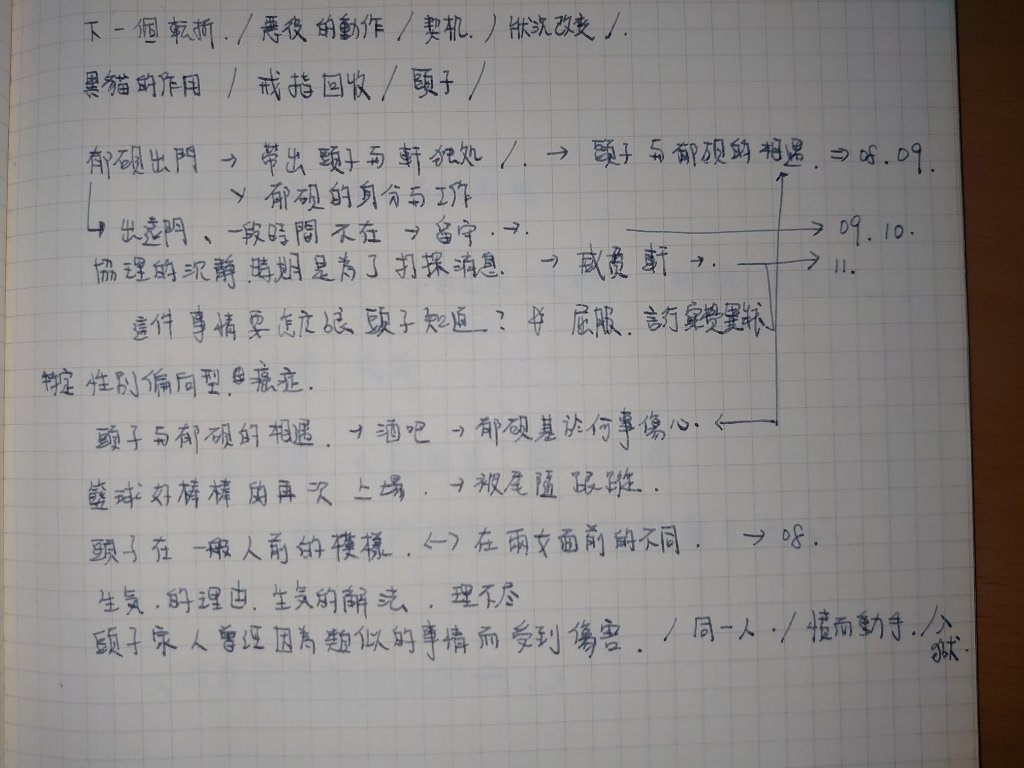 下一個転折./悪役的動作/契机./狀況改变/.
黑貓的作用 / 戒指回收/頭子/
郁硯出門 → 帶出頭子与軒独処/. → 頭子与郁硯的相遇. ⇒ 08.09.
郁硯的身分与工作
↳ 出遠門、一段時間不在 → 留守.→. → 09.10.
協理的沉靜時期是為了打探消息. → 威脅軒 →. → 11.
這件事情要怎広 頭子知道? 屈服.言行
特定性別偏向型 癌症.
頭子与郁硯的相遇. → 酒吧 → 郁硯基於何事傷心. ←
籃球好棒棒的再次上場. → 被尾隨跟蹤.
頭子在一般人前的模様. ↔ 在兩女面前的不同. → 08.
生気.的理由.生気的解法.理不尽
頭子家人曾経因為類似的事情而受到傷害. /同一人./憤而動手./入獄.